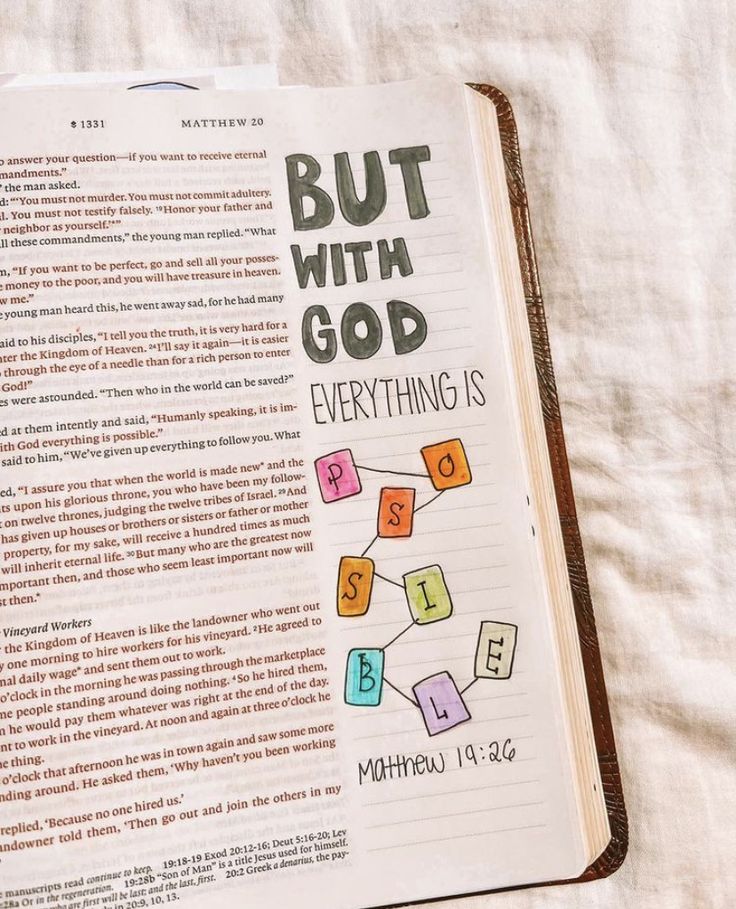 1331 MATTHEW 20
o answer your question—if you want to receive eternal
mandments.”
” the man asked.
d: “‘You must not murder. You must not commit adultery.
l. You must not testify falsely. ¹⁹Honor your father and
neighbor as yourself.’*”
ll these commandments,” the young man replied. “What
m, “If you want to be perfect, go and sell all your posses-
e money to the poor, and you will have treasure in heaven.
w me.”
e young man heard this, he went away sad, for he had many
aid to his disciples, “I tell you the truth, it is very hard for a
nter the Kingdom of Heaven. ²⁴I’ll say it again—it is easier
through the eye of a needle than for a rich person to enter
God!”
es were astounded. “Then who in the world can be saved?”
d at them intently and said, “Humanly speaking, it is im-
ith God everything is possible.”
said to him, “We’ve given up everything to follow you. What
ed, “I assure you that when the world is made new* and the
its upon his glorious throne, you who have been my follow-
t on twelve thrones, judging the twelve tribes of Israel. ²⁹And
has given up houses or brothers or sisters or father or mother
property, for my sake, will receive a hundred times as much
will inherit eternal life. ³⁰But many who are the greatest now
mportant then, and those who seem least important now will
st then.*
Vineyard Workers
the Kingdom of Heaven is like the landowner who went out
y one morning to hire workers for his vineyard. ²He agreed to
nal daily wage* and sent them out to work.
o’clock in the morning he was passing through the marketplace
me people standing around doing nothing. ⁴So he hired them,
n he would pay them whatever was right at the end of the day.
nt to work in the vineyard. At noon and again at three o’clock he
e thing.
o’clock that afternoon he was in town again and saw some more
nding around. He asked them, ‘Why haven’t you been working
replied, ‘Because no one hired us.’
andowner told them, ‘Then go out and join the others in my
manuscripts read continue to keep. 19:18-19 Exod 20:12-16; Deut 5:16-20; Lev
28a Or in the regeneration. 19:28b “Son of Man” is a title Jesus used for himself.
who are first will be last; and the last, first. 20:2 Greek a denarius, the pay-
in 20:9, 10, 13.
BUT
WITH
GOD
EVERYTHING IS
P O
S
S I
B L E
Matthew 19:26